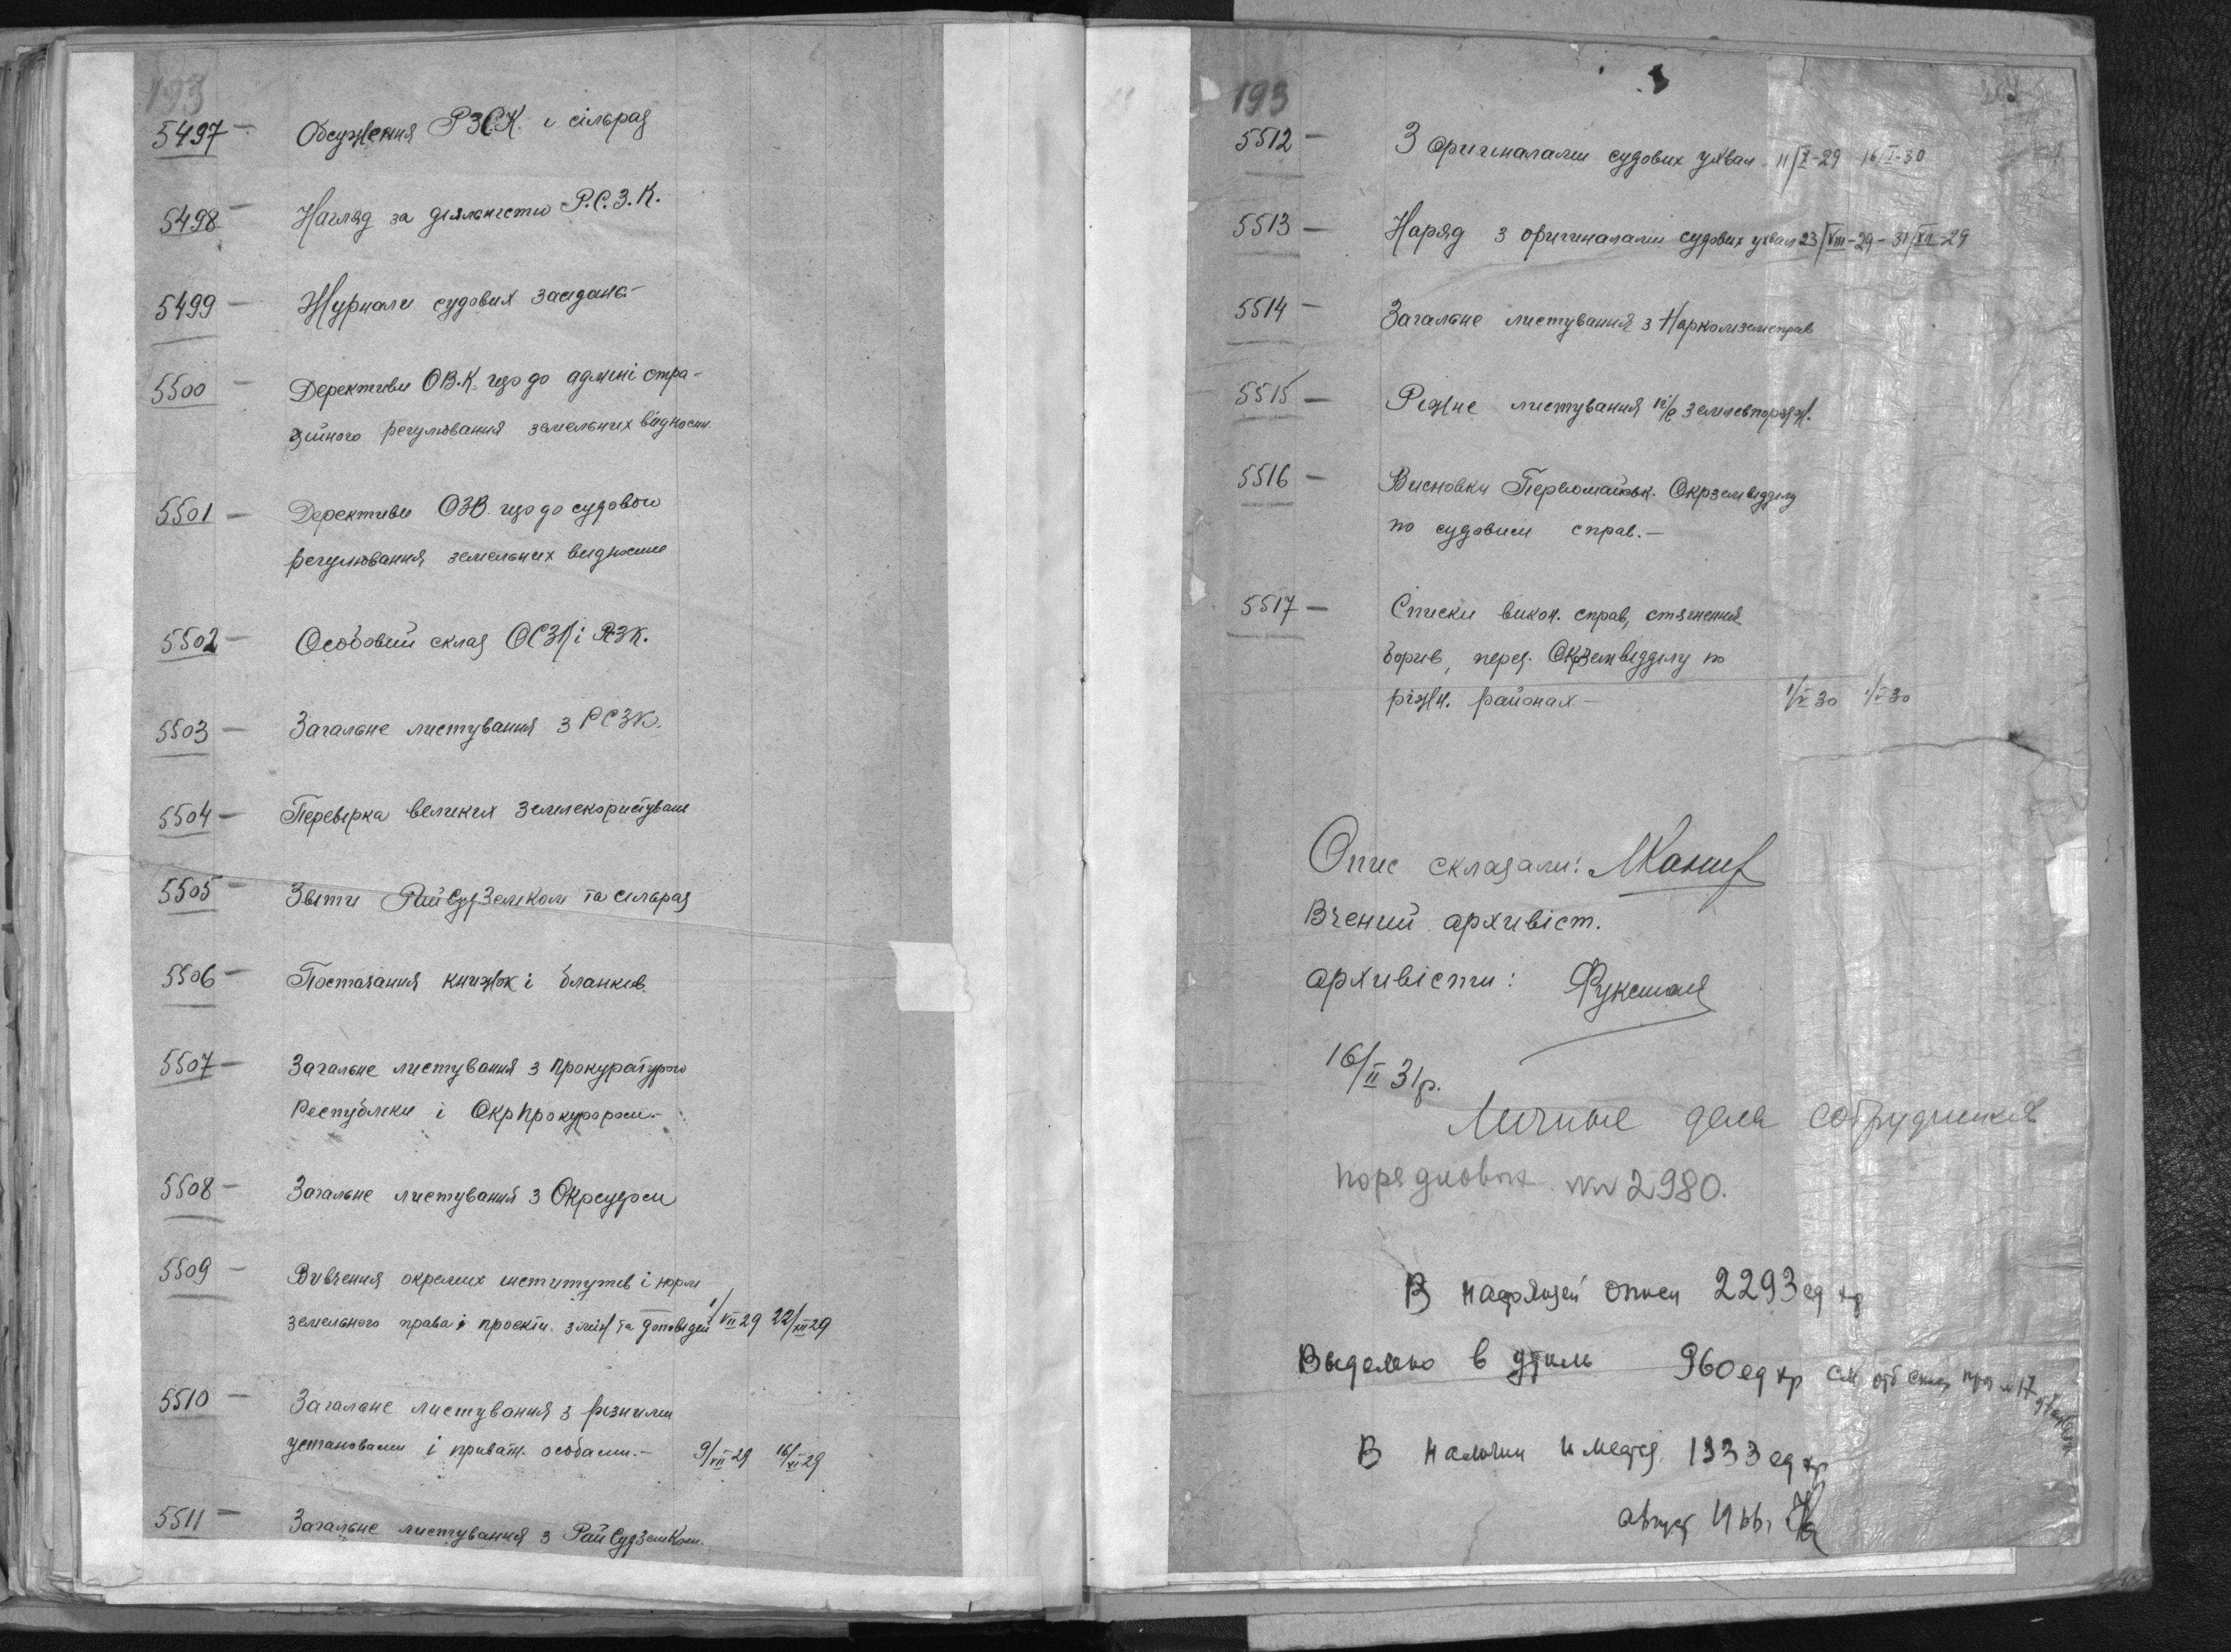 193
5497 - Обсуження РЗСК. і сільрад
5498 - Нагляд за діяльністю Р.С.З.К.
5499 - Журнали судових засідань-
5500 - Дерективи ОВ.К. що до адміністра-
ційного регулювання земельних відносин
5501 - Дерективи ОЗВ що до судовою
регулювання земельних видносин
5502 - Особовий склад ОСЗК і РЗК.
5503 - Загальне листування з РСЗК.
5504 - Перевірка великих землекористувань
5505 - Звіти РайСудЗемКом та сільрад
5506 - Постачання книжок і бланків.
5507 - Загальне листування з прокуратурою
Республіки і Окрпрокурором.-
5508 - Загальне листування з Окрсудом
5509 - Вивчення окремих інститутів і норм
земельного права і проекти змін та доповідей 1/VII 29 22/XII 29
5510 - Загальне листування з різними
установами і приватн. особами.- 9/VII 29 16/XI 29
5511 - Загальне листування з РайСудЗемКом.
193
5512 - З оригіналами судових ухвал 11/X-29 16/I-30
5513 - Наряд з оригіналами судових ухвал 23/VIII-29 - 31/XII-29
5514 - Загальне листування з Наркомземсправ
5515 - Ріжне листування землевпорядж.
5516 - Висновки Первомайськ. Окрземвідділу
по судовим справ.-
5517 - Списки викон. справ, стягнення
борив, перед. Окрземвідділу по
ріжн. районах - 1/V 30 1/V 30
Опис складали:
Вчений архивіст.
архивісти:
16/II 31р.
Личные дела сотрудников
порядковой №№ 2980.
В настоящей описи 2293 ед хр
Выделено в утиль 960 ед хр см
В наличии имеется 1333 ед хр
август 1966г